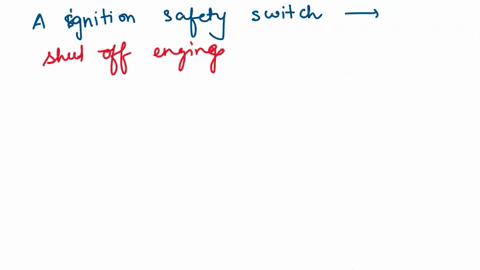 A ignition safety switch →
shut off engine